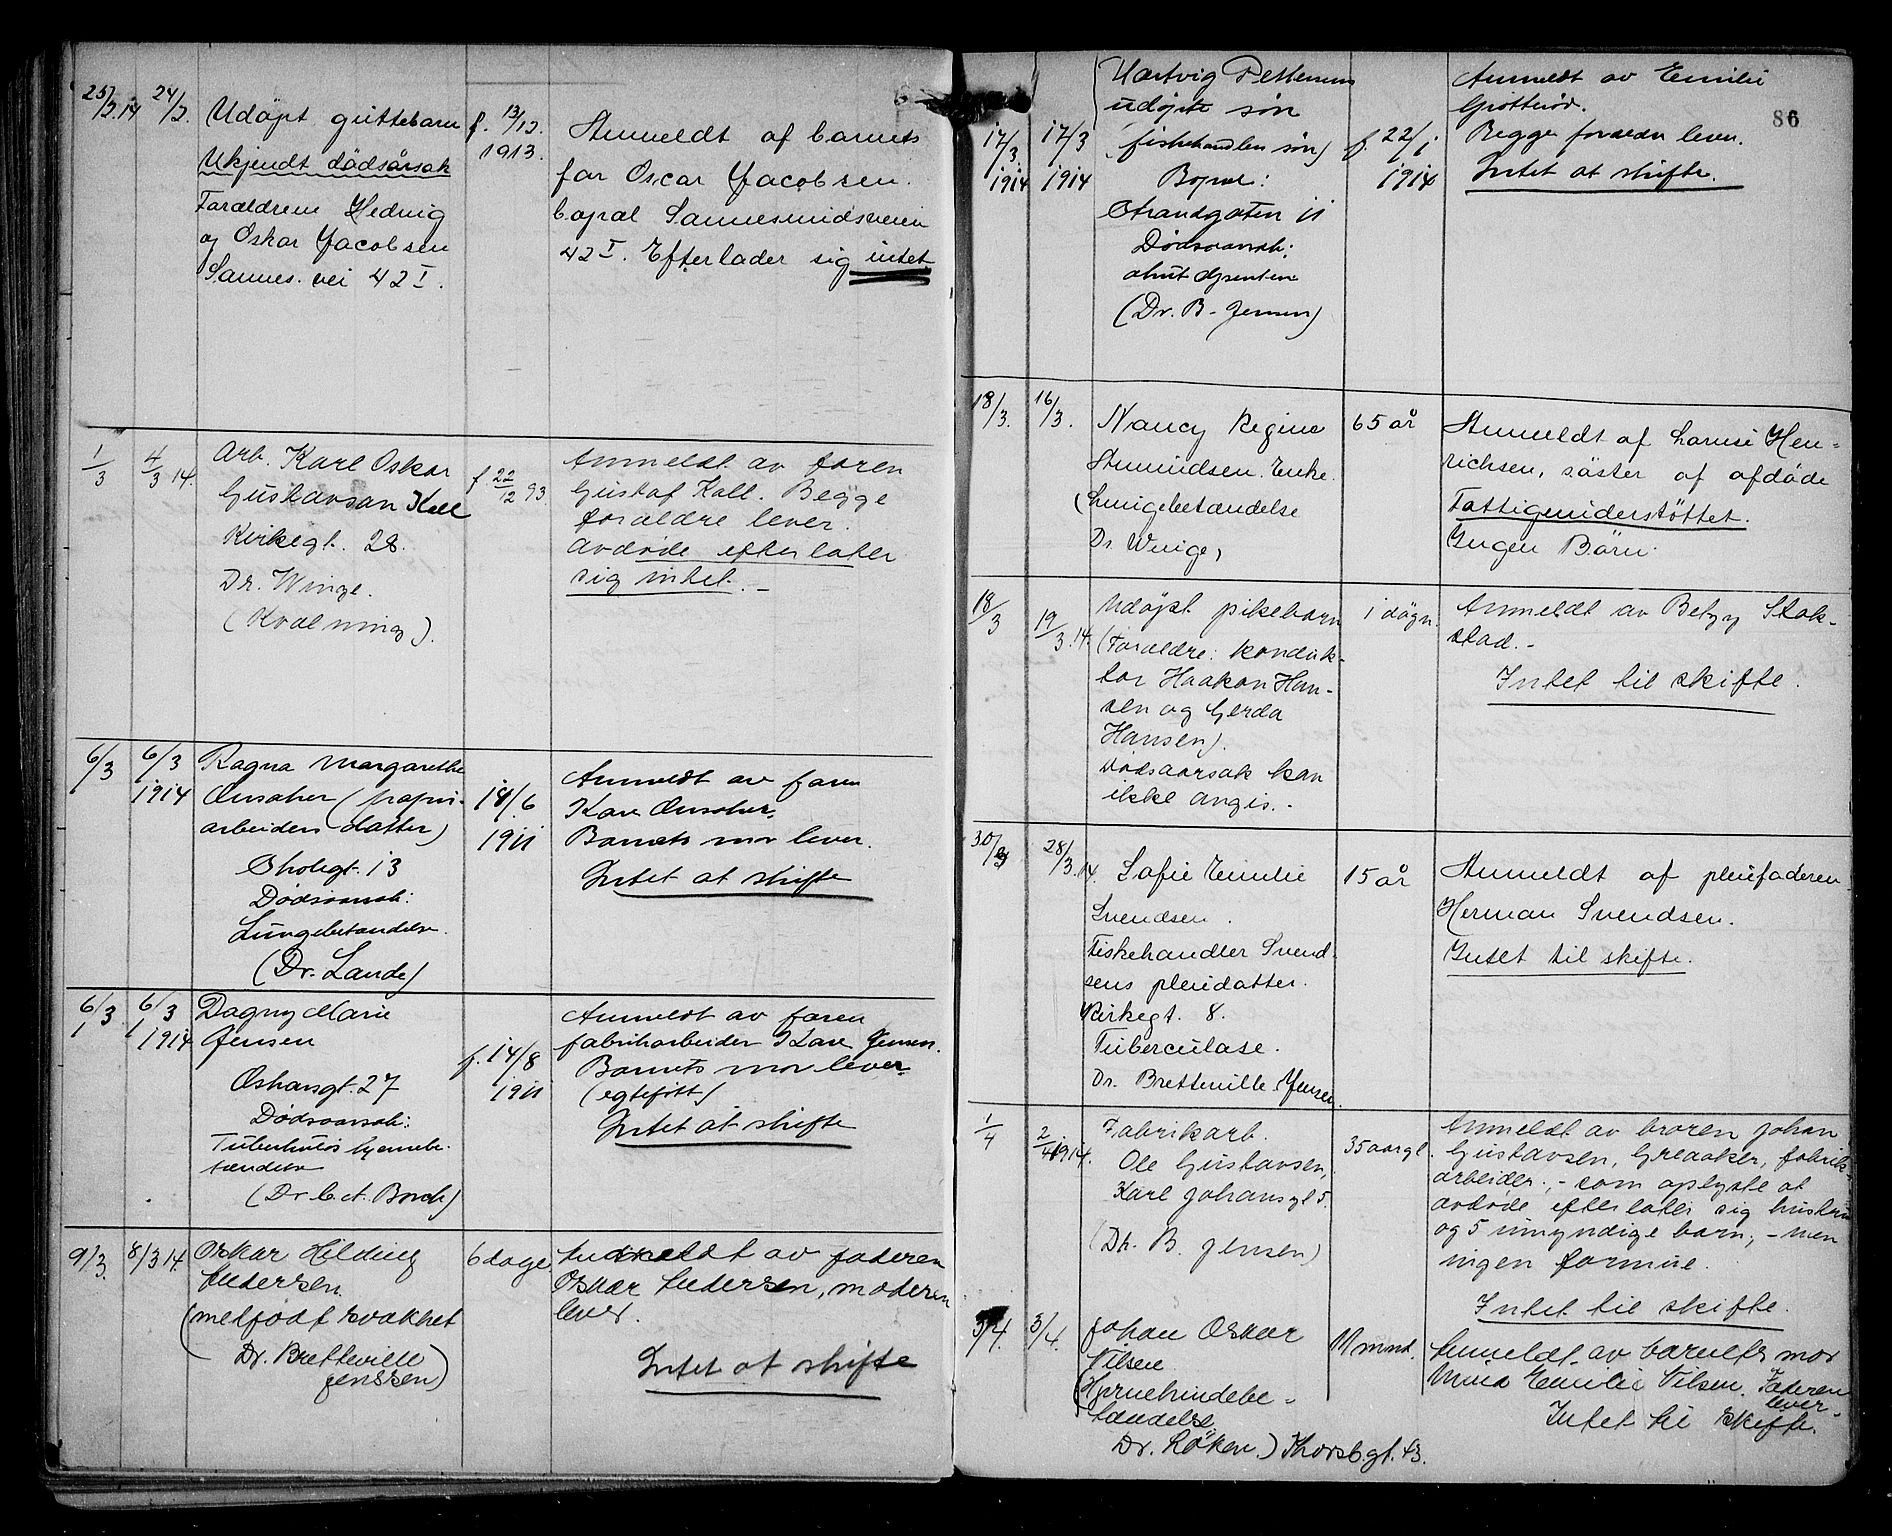 25/2.14 24/2. Udøpt guttebarn f. 13/12. 1913. Anmeldt af barnets
Ukjendt dödsårsak far Oscar Jacobsen.
Forældrene Hedvig bopæl Sannesundsveien
og Oskar Jacobsen 42 I. Efterlader sig intet
Sannes. vei 42 I.
1/3 4/3 14. Arb. Karl Oskar f 22/12 93. Anmeldt av faren
Gustavsan Kall Gustaf Kall. Begge
Kirkegt. 28. forældre lever.
Dr. Winge. avdøde efterlater
(Kvælning). sig intet. -
6/3 6/3 1914 Ragna Margarethe 18/6 1911 Anmeldt av faren
arbeiders datter) Barnets mor lever.
Skolegt. 13 Intet at skifte
Dødsaarsak:
Lungebetændelse.
(Dr. Lande)
6/3 6/3 1914 Dagny Marie f. 14/8 1911 Anmeldt av faren
Jensen fabrikarbeider Jensen.
Oskarsgt. 27 Barnets mor lever
Dødsaarsak: (egtefött)
Tuberkuløs hjernebe- Intet at skifte
tændelse
(Dr. C. A. Borch)
9/3. 8/3 14. Oskar Hilding 6 dage. Anmeldt av faderen
Andersen Oskar Andersen, moderen
(medfødt svakhet lever.
Dr. Bretteville Intet at skifte
Jenssen)
86
17/3. 1914 17/3 1914 Hartvig Pettersens f. 22/1 1914 Anmeldt av Emilie
udøpte søn Grötteröd.
(fiskehandler søn) Begge forældre lever.
Bopæl: Intet at skifte.
Strandgaten 11
Dødsaarsak:
akut dysenteri
(Dr. B. Jensen)
18/3. 16/3. Nancy Regine 65 år Anmeldt af Lovise Hen=
Amundsen. Enke. richsen, söster af afdöde
(Lungebetændelse Fattigunderstöttet.
Dr Winge) Ingen Börn.
18/3 19/3.14. Udøpt pikebarn 1 døgn. Anmeldt av Betzy Stok-
(Forældre: konduk- stad.-
tør Haakon Han- Intet til skifte.
sen og Gerda
Hansen).
Dødsaarsak kan
ikke angis.-
30/3 28/3.14. Sofie Emilie 15 år Anmeldt af pleiefaderen
Svendsen. Herman Svendsen.
Fiskehandler Svend- Intet til skifte.
sens pleiedatter.
Kirkegt. 8.
Tuberculose.
Dr. Bretteville Jensen.
1/4 2/4 1914. Fabrikarb. 35 aar gl. Anmeldt av broren Johan
Ole Gustavsen, Gustavsen, Greaaker, fabrik-
Karl Johansgt 5. arbeider, - som oplyste at
(Dr. B. Jensen) avdøde efterlater sig hustru
og 5 umyndige barn, - men
ingen formue.
Intet til skifte.
3/4. 3/4. Johan Oskar 11 mnd. Anmeldt av barnets mor
Nilsen Emilie Nilsen. Faderen
(Hjernehindebe- lever-
tændelse Intet til skifte.
Dr. Röken.) Thorsb.gt. 43.